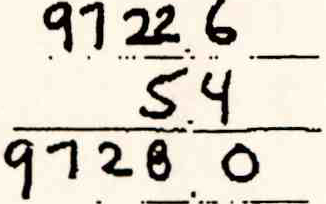 97226
54
97280